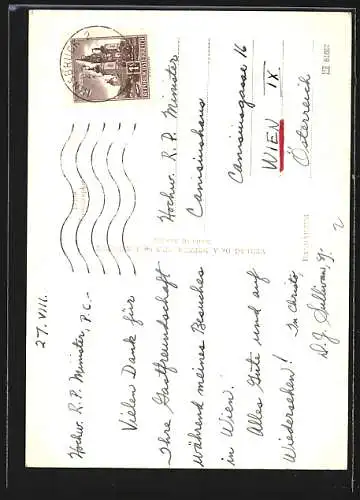 27. VIII.
Hochw. R. P. Minister, P.C. –
Vielen Dank für
Ihre Gastfreundschaft
während meines Besuches
in Wien.
Alles Gute und auf
Wiedersehen! In Christo,
D. J. Sullivan, S.J.
Hochw. R. P. Minister
Canisiushaus
Canisiusgasse 16
WIEN IX
Österreich